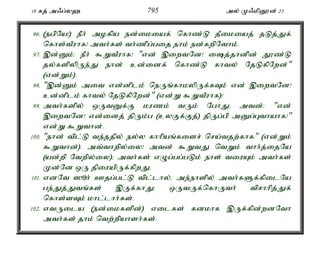 18 கத் அஃப்லஹ 795 அல் மூஃமினூன் 23
96. (நபியே!) நீர் அழகிய நன்மையைக் கொண்டு தீமையைத் தடுத்துக்
கொள்வீராக! அவர்கள் வர்ணிப்பதை நாம் நன்கறிவோம்.
97. இன்னும்: நீர் கூறுவீராக! "என் இறைவனே! ஷைத்தானின் தூண்டு
தல்களிலிருந்து நான் உன்னைக் கொண்டு காவல் தேடுகிறேன்"
(என்றும்)
98. "இன்னும் அவை என்னிடம் நெருங்காமலிருக்கவும் என் இறைவனே!
உன்னிடம் காவல் தேடுகிறேன்" (என்று கூறுவீராக):
99. அவர்களில் ஒருவனுக்கு மரணம் வரும் போது, அவன்: "என்
இறைவனே! என்னைத் திரும்ப (உலகுக்குத்) திருப்பி அனுப்புவாயாக!"
என்று கூறுவான்.
100. "நான் விட்டு வந்ததில் நல்ல காரியங்களைச் செய்வதற்காக" (என்றும்
கூறுவான்). அவ்வாறில்லை! அவன் கூறுவது வெறும் வார்த்தையே
(யன்றி வேறில்லை); அவர்கள் எழுப்பப்படும் நாள் வரையும் அவர்கள்
முன்னே ஒரு திரையிருக்கிறது.
101. எனவே ஸூர் ஊதப்பட்டு விட்டால், அந்நாளில் அவர்களுக்கிடையே
பந்துத்துவங்கள் இருக்காது; ஒருவருக்கொருவர் விசாரித்துக்
கொள்ளவும் மாட்டார்கள்.
102. எவருடைய (நன்மைகளின்) எடைகள் கனமாக இருக்கின்றனவோ
அவர்கள் தாம் வெற்றியாளர்கள்.